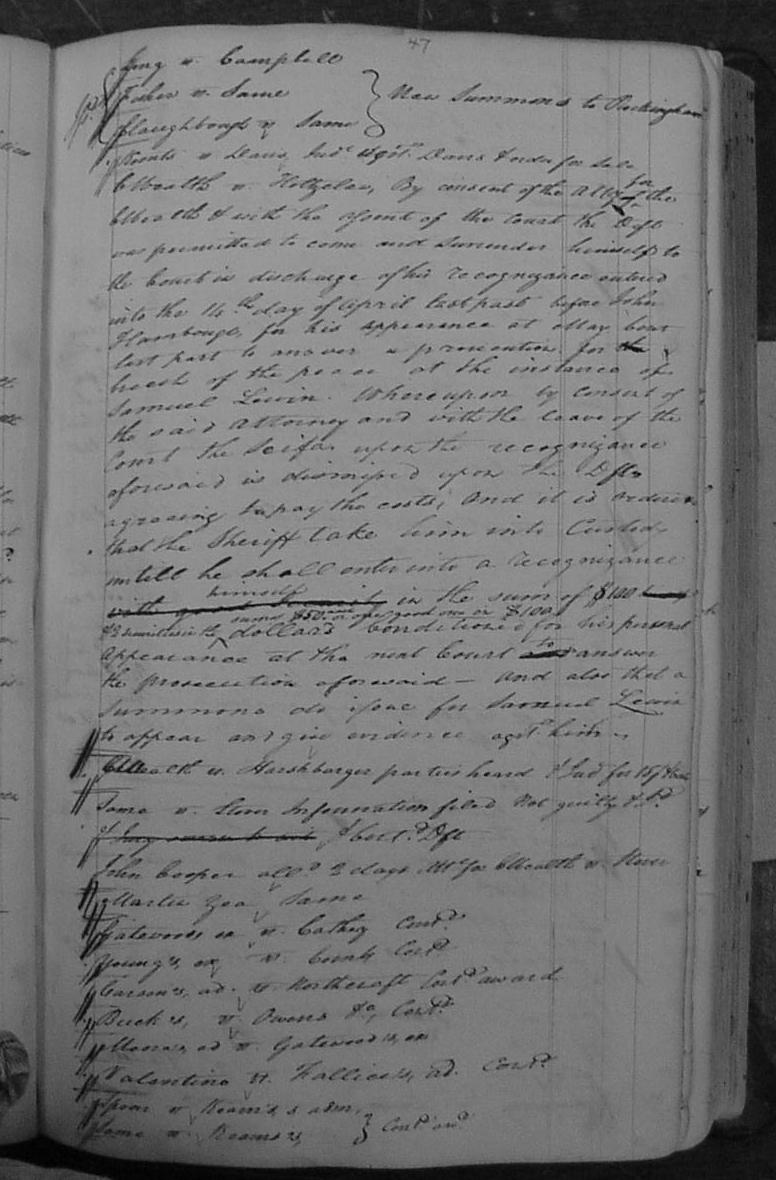 47
v. Campbell
v. Same
Slaughbough v. Same } New Summons to Rockingham
v. Davis, Jud.t agst. Davis & order for sale
C Wealth v. By consent of the Atty for the
C Wealth & with the assent of the Court the Deft
was permitted to come and Surrender himself to
the Court in discharge of his recognizance entered
into the 14th day of April last past before John
for his appearance at May Court
last past to answer a prosecution for
breach of the peace at the instance of
Samuel Lewin. Whereupon by consent of
the said Attorney and with the leave of the
Court the Scifa upon the recognizance
aforesaid is dismissed upon the Dfts
agreeing to pay the costs, And it is ordered
that the Sheriff take him into Custody
untill he shall enter into a recognizance
himself
with good in the sum of $100
securities in the sum $50 or one good one in $100
dollars Conditioned for his personal
appearance at the next Court to answer
the prosecution aforesaid — And also that a
Summons do issue for Samuel Lewin
to appear and give evidence agst him.
C Wealth v. Harshbarger parties heard & Jud.t for
Same v. Information filed Not guilty &
Cont.d Dft
John Cooper all.d 2 days Att. for C Wealth v.
Martin v Same
Gatewoods ex v. Cathey Cont.d
Young's, ex v. Cont.d
Carson's, ad. v. Northcraft Cont.d award
Buck's, v. Owens &a, Cont.d
ad v. Gatewood's, ex
Valentine v. ad. Cont.d
v adm.
Same v. } Cont.d awd